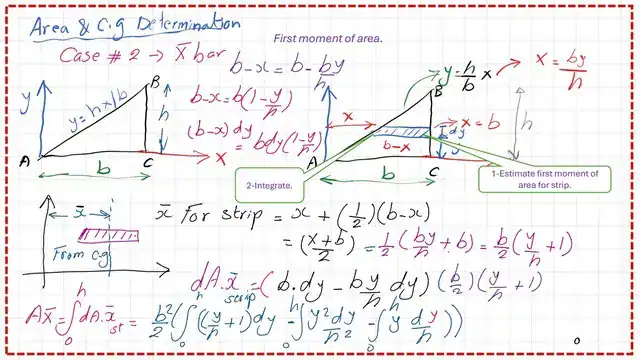 Area & C.g Determination
First moment of area.
Case # 2 → X̄ bar
b-x = b - by/h
y = h/b x
x = by/h
y
y = hx/b
B
h
b-x = b(1-y/h)
(b-x)dy = bdy(1-y/h)
A
b
C
x
x
B
x = b
dy
h
A
b-x
b
C
2-Integrate.
1-Estimate first moment of area for strip.
x̄
From c.g
x̄ For strip = x + (1/2)(b-x)
= (x+b)/2 = 1/2 (by/h + b) = b/2 (y/h + 1)
dA.x̄ strip = (b.dy - by/h dy) (b/2)(y/h + 1)
Ax̄ = ∫₀ʰ dA.x̄ st = b²/2 (∫₀ʰ (y/h + 1)dy - ∫₀ʰ y² dy/h² - ∫₀ʰ y dy/h))